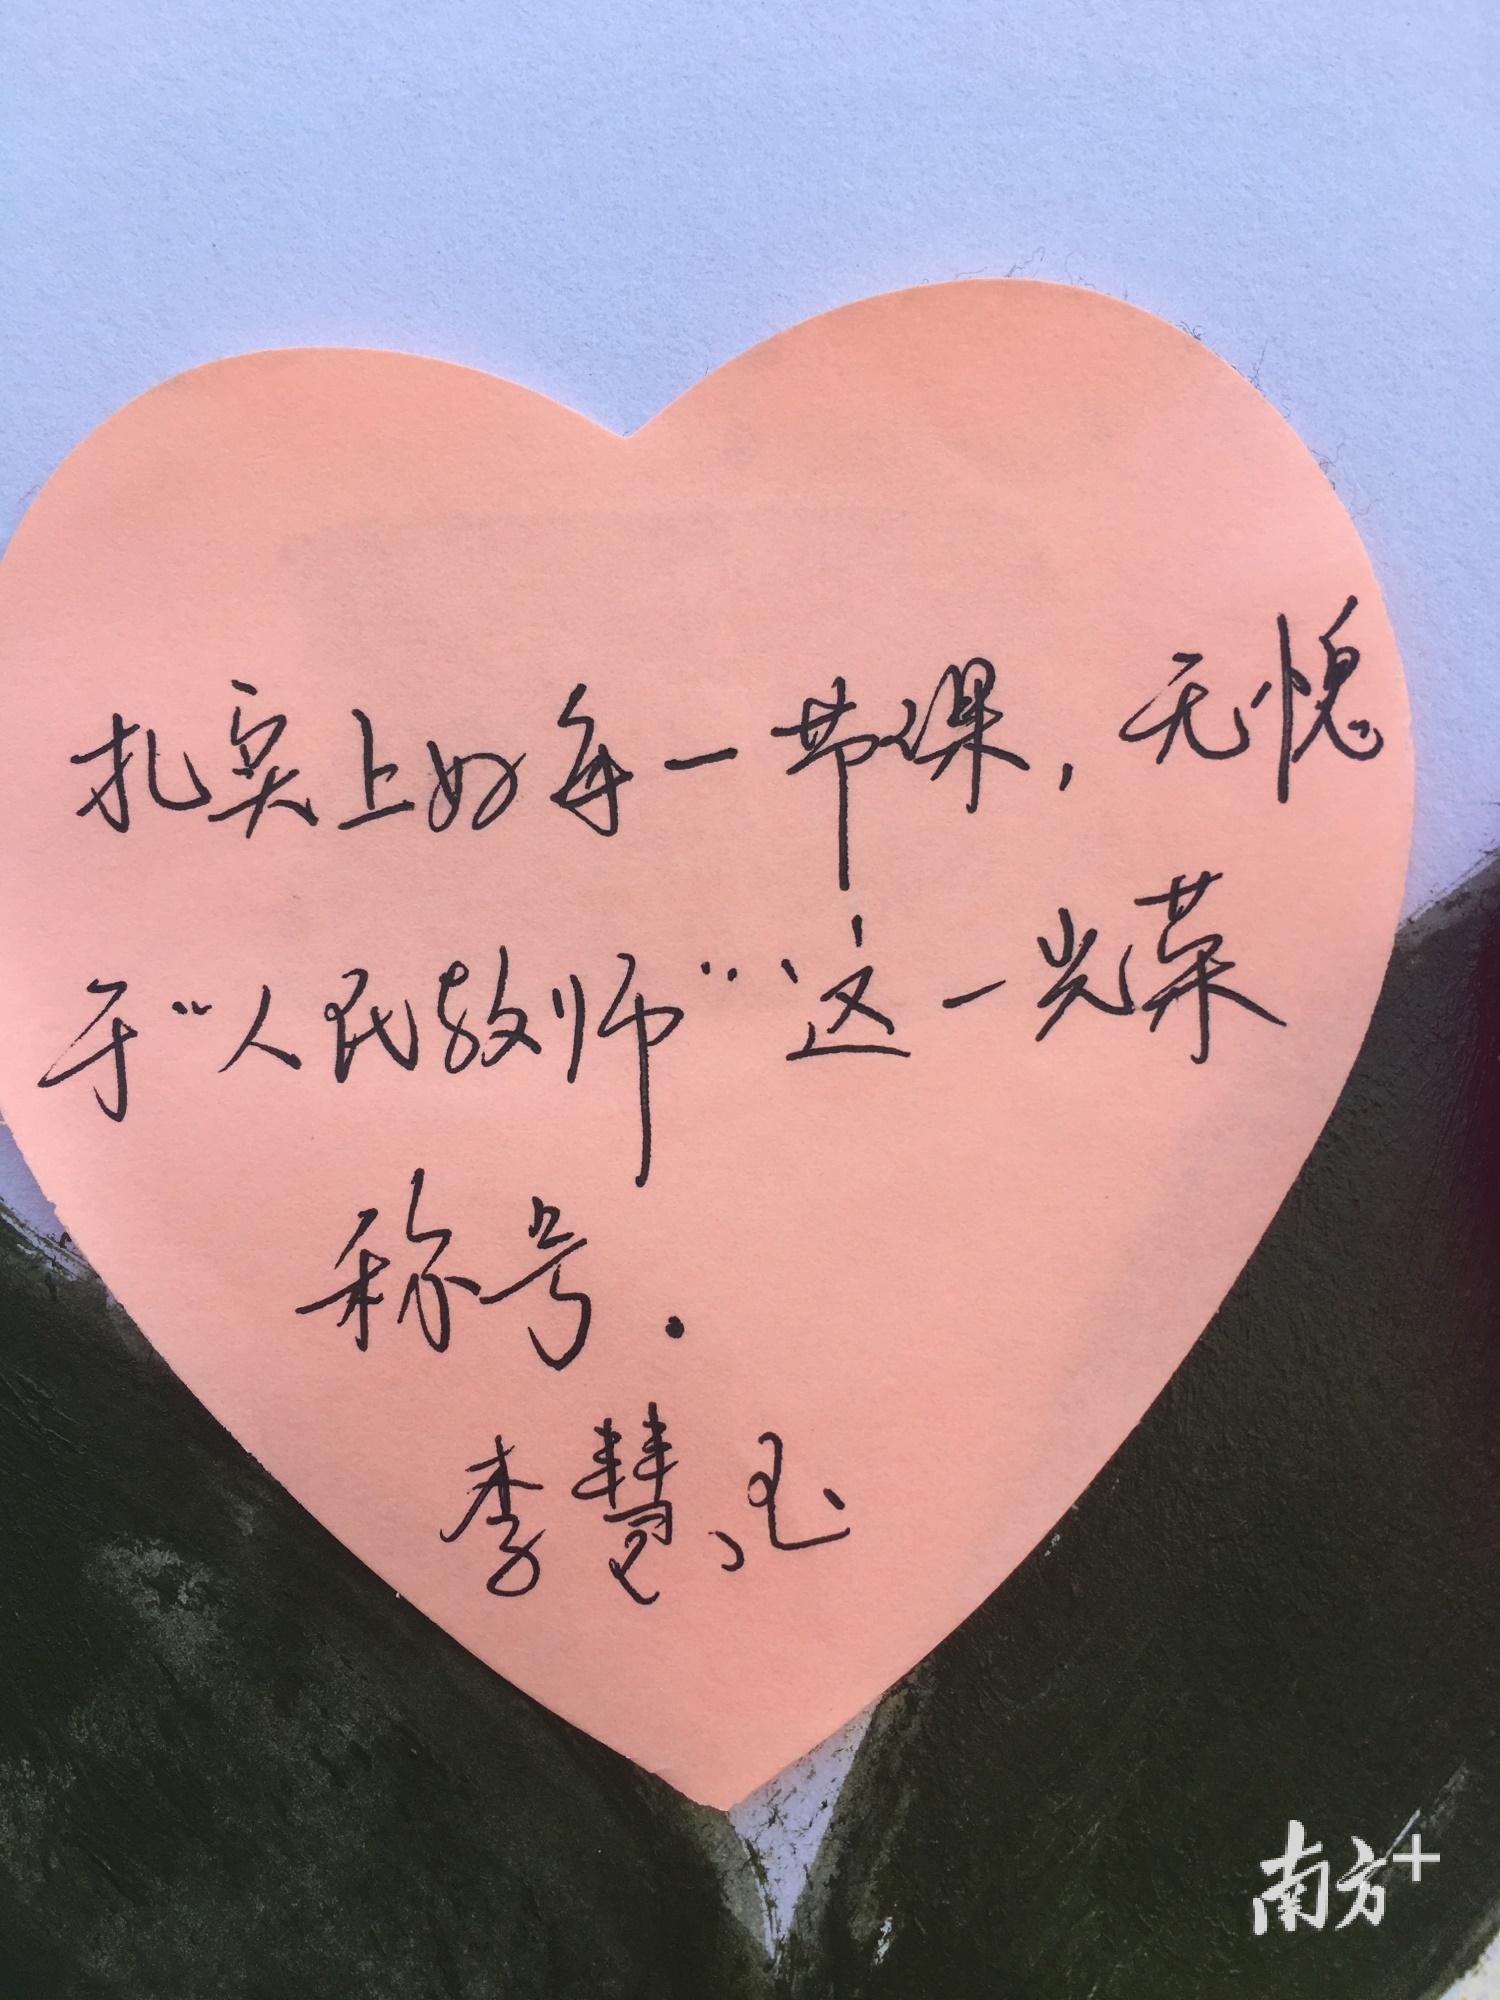 扎实上好每一节课，无愧
于“人民教师”这一光荣
称号.
李慧玉
南方+